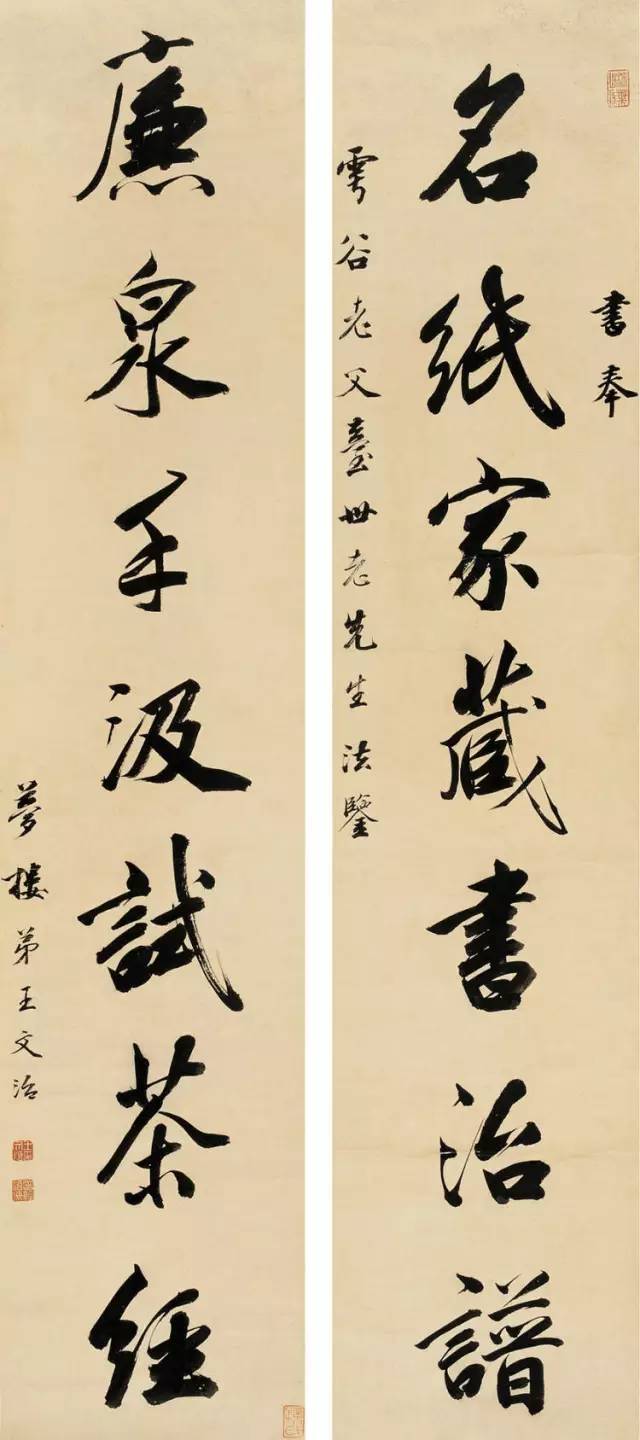 書奉
名紙家藏書治譜
雩谷老父臺世老先生法鑒
廉泉手汲試茶經
夢樓弟王文治